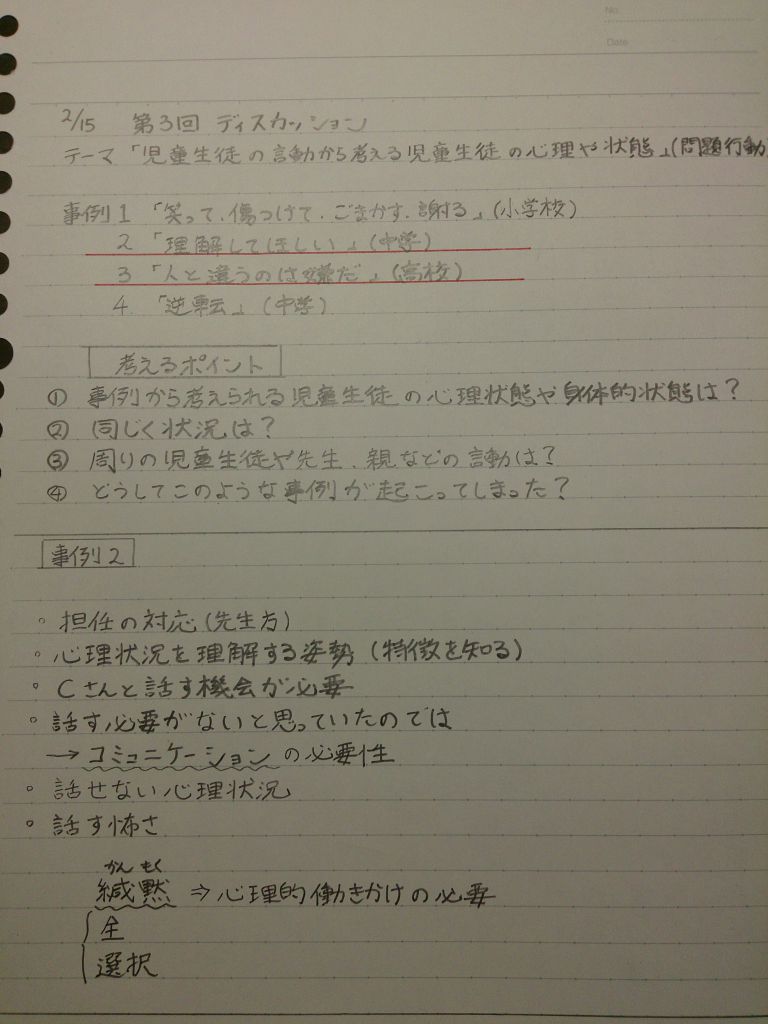 No.
Date
2/15 第3回 ディスカッション
テーマ 「児童生徒の言動から考える児童生徒の心理や状態」(問題行動)
事例1 「笑って、傷つけて、ごまかす、謝る」(小学校)
2 「理解してほしい」(中学)
3 「人と違うのは嫌だ」(高校)
4 「逆転」(中学)
考えるポイント
① 事例から考えられる児童生徒の心理状態や身体的状態は?
② 同じく状況は?
③ 周りの児童生徒や先生、親などの言動は?
④ どうしてこのような事例が起こってしまった?
事例2
・担任の対応(先生方)
・心理状況を理解する姿勢(特徴を知る)
・Cさんと話す機会が必要
・話す必要がないと思っていたのでは
→コミュニケーションの必要性
・話せない心理状況
・話す怖さ
かん もく
緘黙 ⇒心理的働きかけの必要
全
選択